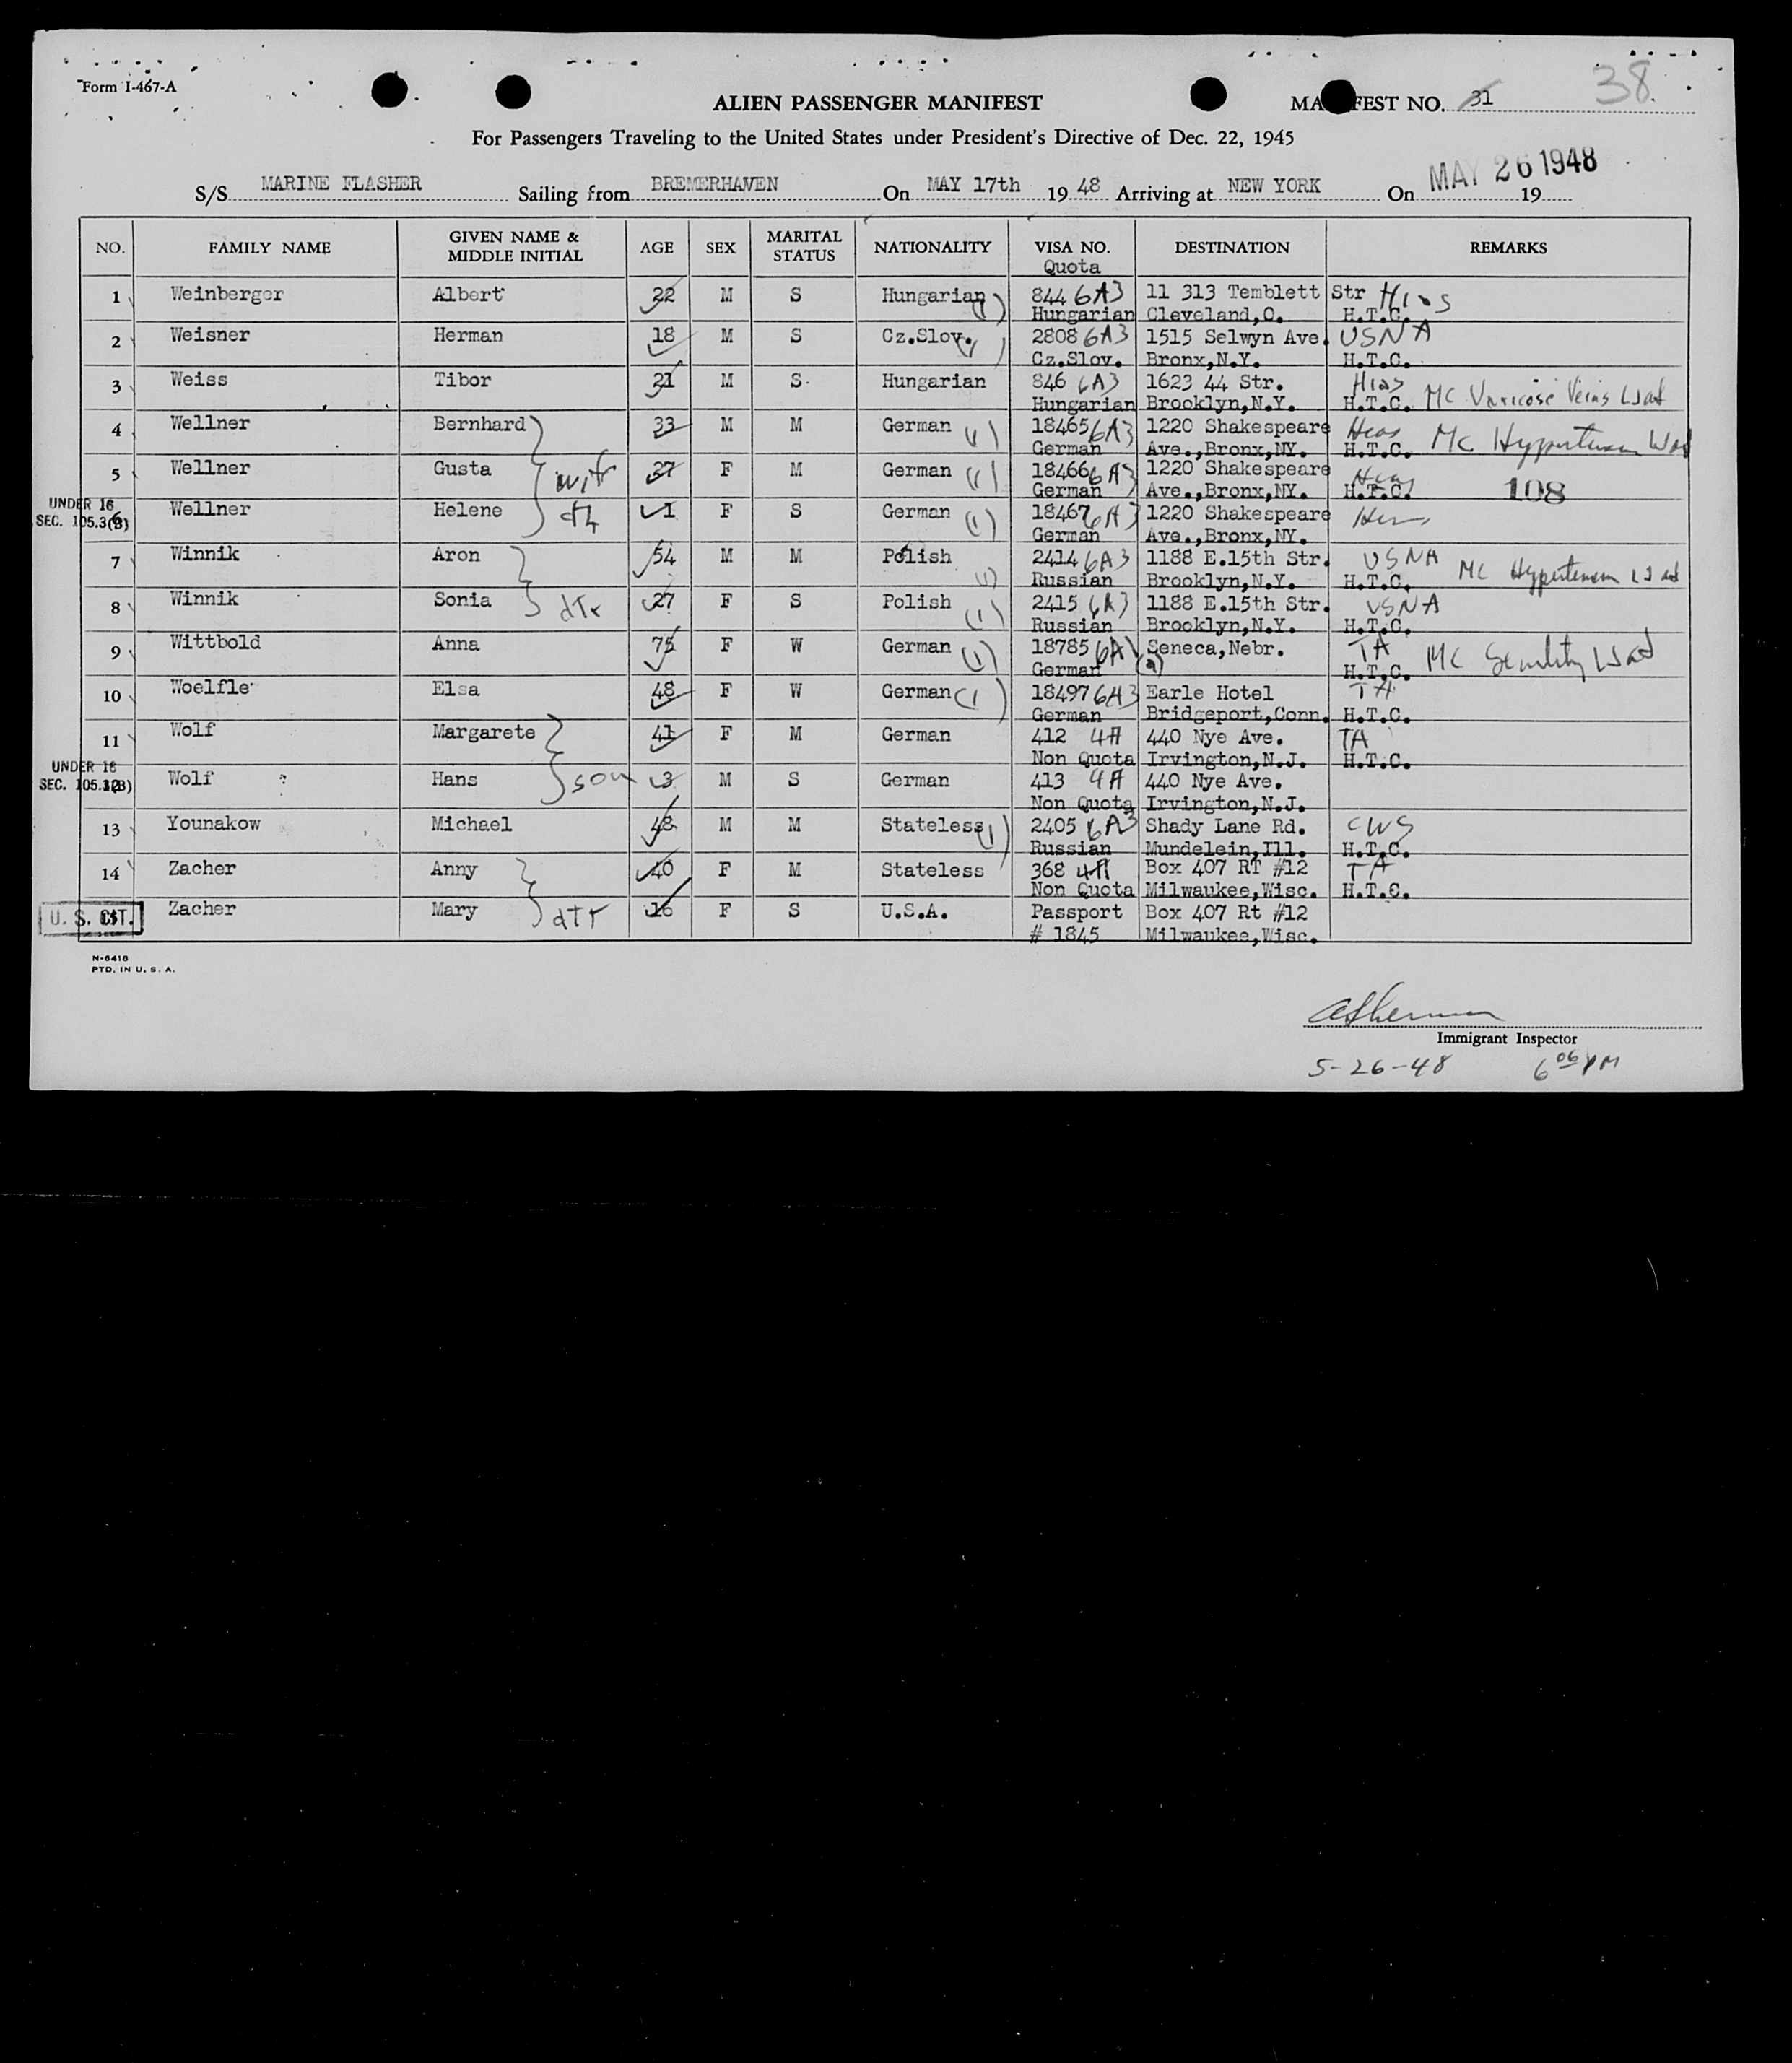 Form I-467-A
38
ALIEN PASSENGER MANIFEST
MANIFEST NO. 31
For Passengers Traveling to the United States under President's Directive of Dec. 22, 1945
S/S MARINE FLASHER Sailing from BREMERHAVEN On MAY 17th 19 48 Arriving at NEW YORK On MAY 26 1948 19
NO. FAMILY NAME GIVEN NAME & MIDDLE INITIAL AGE SEX MARITAL STATUS NATIONALITY VISA NO. Quota DESTINATION REMARKS
1 Weinberger Albert 22 M S Hungarian (1) 844 6A3 11 313 Temblett Str Hias
Hungarian Cleveland,O. H.T.C.
2 Weisner Herman 18 M S Cz.Slov. (1) 2808 6A3 1515 Selwyn Ave. USNA
Cz.Slov. Bronx,N.Y. H.T.C.
3 Weiss Tibor 21 M S Hungarian 846 6A3 1623 44 Str. Hias
Hungarian Brooklyn,N.Y. H.T.C. MC Varicose Veins
4 Wellner Bernhard 33 M M German (1) 18465 6A3 1220 Shakespeare Hias
German Ave.,Bronx,NY. H.T.C. MC Hypertension
5 Wellner Gusta wife 27 F M German (1) 18466 6A3 1220 Shakespeare Hias
German Ave.,Bronx,NY. H.T.C. 108
UNDER 16
SEC. 105.3(B)
6 Wellner Helene 1 F S German (1) 18467 6A3 1220 Shakespeare Hias
German Ave.,Bronx,NY.
7 Winnik Aron 54 M M Polish (1) 2414 6A3 1188 E.15th Str. USNA MC Hypertension
Russian Brooklyn,N.Y. H.T.C.
8 Winnik Sonia dtr 27 F S Polish (1) 2415 6A3 1188 E.15th Str. USNA
Russian Brooklyn,N.Y. H.T.C.
9 Wittbold Anna 75 F W German (1) 18785 6A1 Seneca,Nebr. TA MC Senility
German (a) H.T.C.
10 Woelfle Elsa 48 F W German (1) 18497 6A3 Earle Hotel TA
German Bridgeport,Conn. H.T.C.
11 Wolf Margarete 41 F M German 412 4A 440 Nye Ave. TA
Non Quota Irvington,N.J. H.T.C.
UNDER 16
SEC. 105.3(B)
12 Wolf Hans son 3 M S German 413 4A 440 Nye Ave.
Non Quota Irvington,N.J.
13 Younakow Michael 48 M M Stateless (1) 2405 6A3 Shady Lane Rd. CWS
Russian Mundelein,Ill. H.T.C.
14 Zacher Anny 40 F M Stateless 368 4A Box 407 RT #12 TA
Non Quota Milwaukee,Wisc. H.T.C.
U. S. CIT. Zacher Mary dtr 16 F S U.S.A. Passport Box 407 Rt #12
# 1845 Milwaukee,Wisc.
N-6416
PTD. IN U. S. A.
Immigrant Inspector
5-26-48 6 06 PM